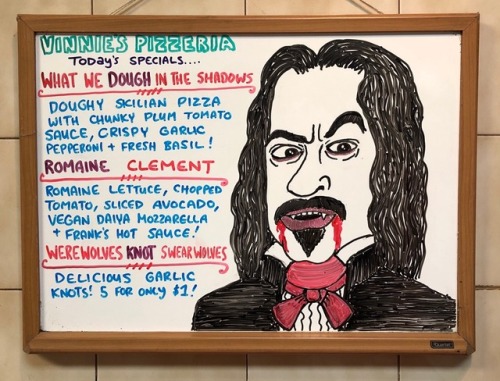 VINNIE'S PIZZERIA
TODAY'S SPECIALS....
WHAT WE DOUGH IN THE SHADOWS
DOUGHY SICILIAN PIZZA
WITH CHUNKY PLUM TOMATO
SAUCE, CRISPY GARLIC
PEPPERONI + FRESH BASIL!
ROMAINE CLEMENT
ROMAINE LETTUCE, CHOPPED
TOMATO, SLICED AVOCADO,
VEGAN DAIYA MOZZARELLA
+ FRANK'S HOT SAUCE!
WEREWOLVES KNOT SWEARWOLVES
DELICIOUS GARLIC
KNOTS! 5 FOR ONLY $1!